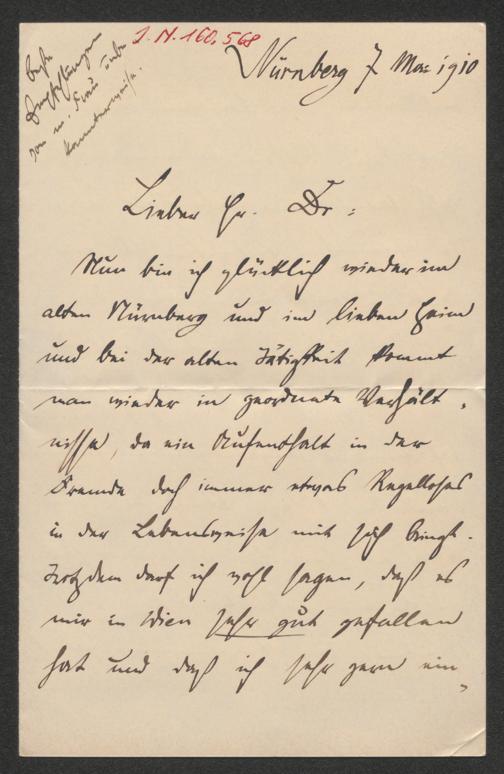 J. N. 160.568
Beste
Empfehlungen
von m. Frau
Nürnberg 7 Mai 1910
Lieber Hr. Dr.:
Nun bin ich glücklich wieder im
alten Nürnberg und im lieben Heim
und bei der alten Tätigkeit kommt
man wieder in geordnete Verhält-
nisse, da ein Aufenthalt in der
Fremde doch immer etwas Regelloses
in der Lebensweise mit sich bringt.
Trotzdem darf ich wohl sagen, daß es
mir in Wien sehr gut gefallen
hat und daß ich sehr gern ein-